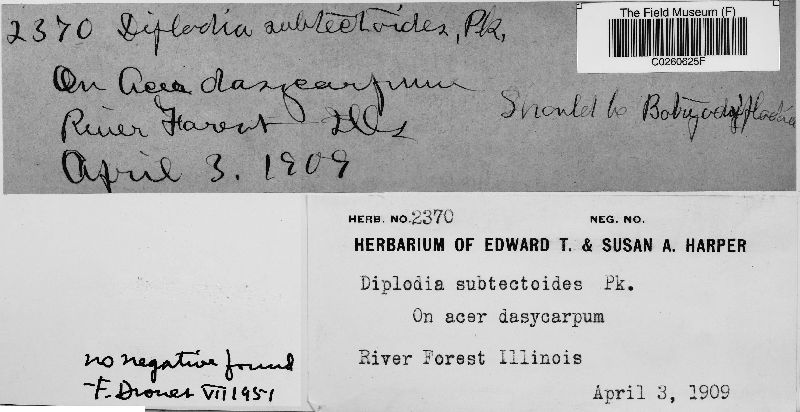 2370 Diplodia subtectoides, Pk.
The Field Museum (F)
C0260625F
On Acer dasycarpum
Should be Botryodiplodia
River Forest Ills
April 3. 1909
HERB. NO. 2370 NEG. NO.
HERBARIUM OF EDWARD T. & SUSAN A. HARPER
Diplodia subtectoides Pk.
On acer dasycarpum
River Forest Illinois
April 3, 1909
no negative found
F. Drouet VII 1951